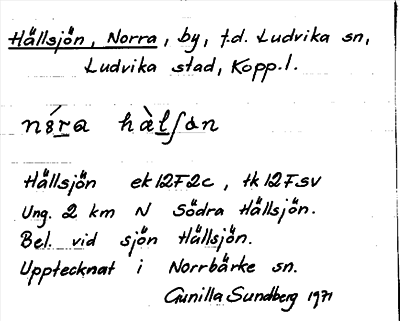 Hällsjön, Norra, by, f.d. Ludvika sn,
Ludvika stad, Kopp.l.
Hällsjön ek 12F2c, tk 12F SV
Ung. 2 km N Södra Hällsjön.
Bel. vid sjön Hällsjön.
Upptecknat i Norrbärke sn.
Gunilla Sundberg 1971